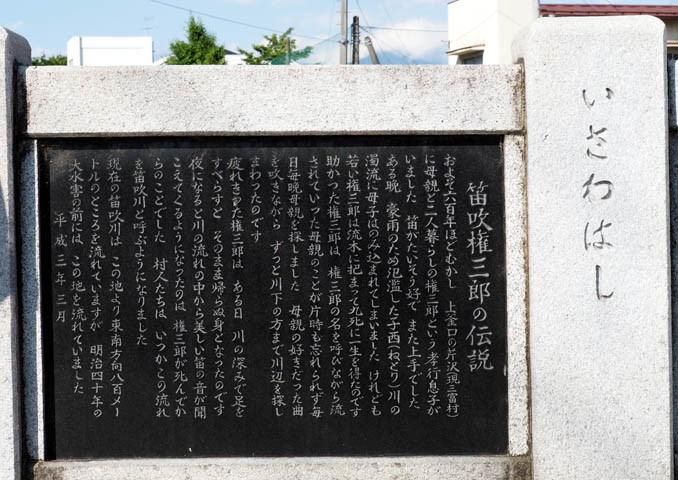 いさわはし
笛吹権三郎の伝説
およそ六百年ほどむかし 上釜口の芹沢(現三富村)
に母親と二人暮らしの権三郎という孝行息子が
いました 笛がたいそう好で また上手でした
ある晩 豪雨のため氾濫した子酉(ねとり)川の
濁流に母子はのみ込まれてしまいました けれども
若い権三郎は流木に掴まって九死に一生を得たのです
助かった権三郎は 権三郎の名を呼びながら流
されていった母親のことが片時も忘れられず毎
日毎晩母親を探しました 母親の好きだった曲
を吹きながら ずっと川下の方まで川辺を探し
まわったのです
疲れきった権三郎は ある日 川の深みで足を
すべらすと そのまま帰らぬ身となったのです
夜になると川の流れの中から美しい笛の音が聞
こえてくるようになったのは 権三郎が死んでか
らのことでした 村人たちは いつかこの流れ
を笛吹川と呼ぶようになりました
現在の笛吹川は この地より東南方向八百メー
トルのところを流れていますが 明治四十年の
大水害の前には この地を流れていました
平成三年三月